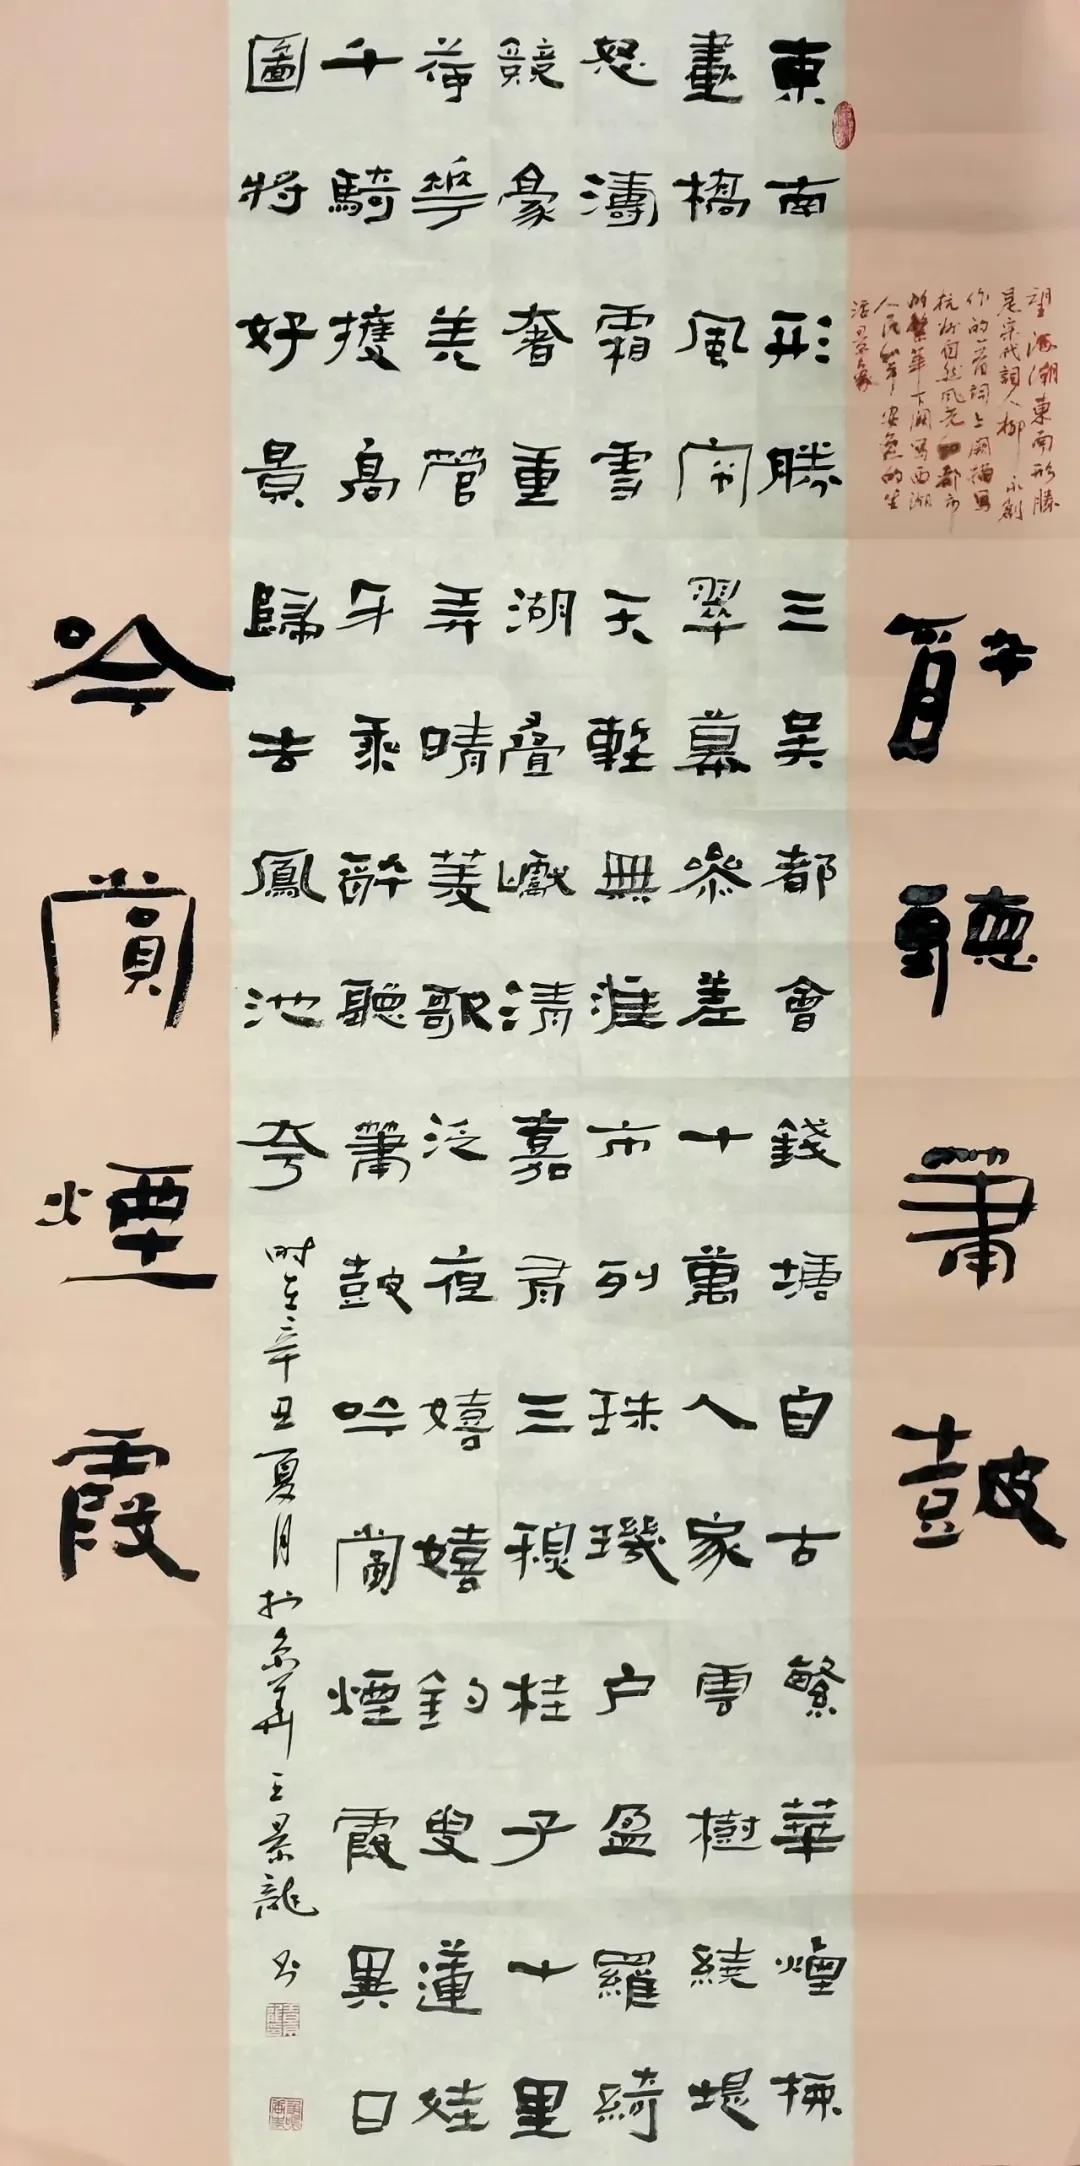 望海潮東南形勝
是宋代詞人柳永創
作的一首詞上阕描寫
杭州自然風光和都市
的繁華下阕寫西湖
人民和平安逸的生
活景象
醉聽簫鼓
東南形勝三吳都會錢塘自古繁華煙柳
畫橋風帘翠幕參差十萬人家雲樹繞堤
怒濤霜雪天塹無涯市列珠璣户盈羅綺
競豪奢重湖疊巘清嘉有三秋桂子十里
荷花羌管弄晴菱歌泛夜嬉嬉釣叟蓮娃
千騎擁高牙乘醉聽簫鼓吟賞煙霞異日
圖將好景歸去鳳池夸
時在辛丑夏月於京華王景龍書
吟賞煙霞